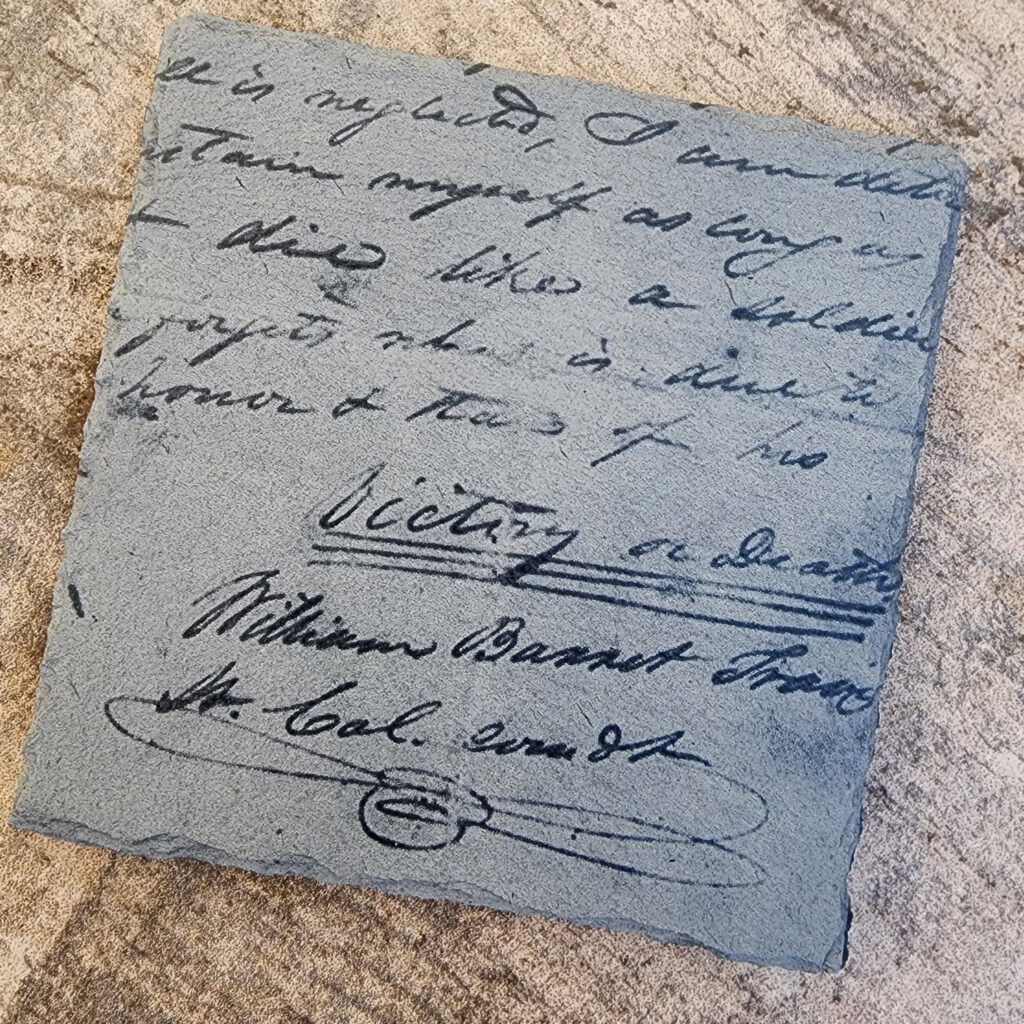 ll is neglected, I am dete
ustain myself as long as
& die like a soldier
forgets what is due to
honor & that of his
Victory or Death
William Barret Travis
Lt. Col. comdt